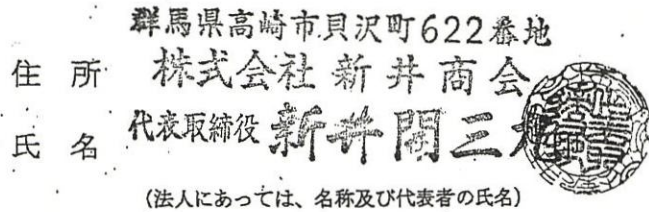 群馬県高崎市貝沢町622番地
住所 株式会社新井商会
氏名 代表取締役 新井閏三
(法人にあっては、名称及び代表者の氏名)